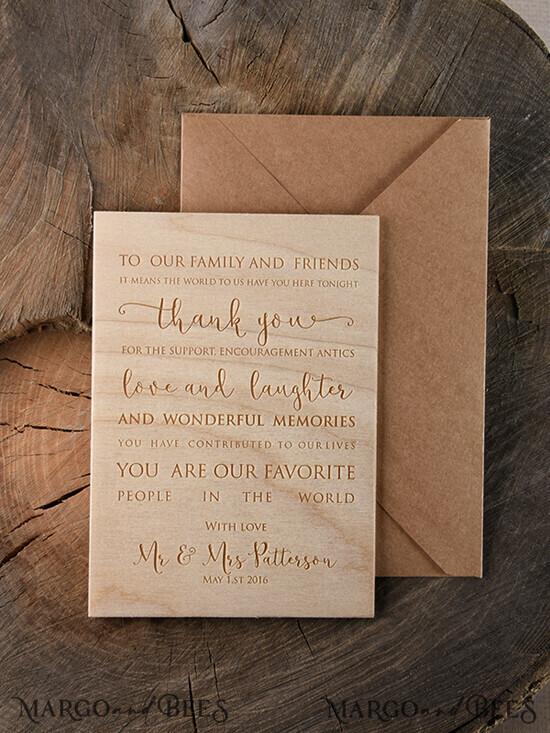 TO OUR FAMILY AND FRIENDS
IT MEANS THE WORLD TO US HAVE YOU HERE TONIGHT
thank you
FOR THE SUPPORT, ENCOURAGEMENT ANTICS
love and laughter
AND WONDERFUL MEMORIES
YOU HAVE CONTRIBUTED TO OUR LIVES
YOU ARE OUR FAVORITE
PEOPLE IN THE WORLD
WITH LOVE
Mr & Mrs Patterson
MAY 1.ST 2016
MARGO and BEES MARGO and BEES